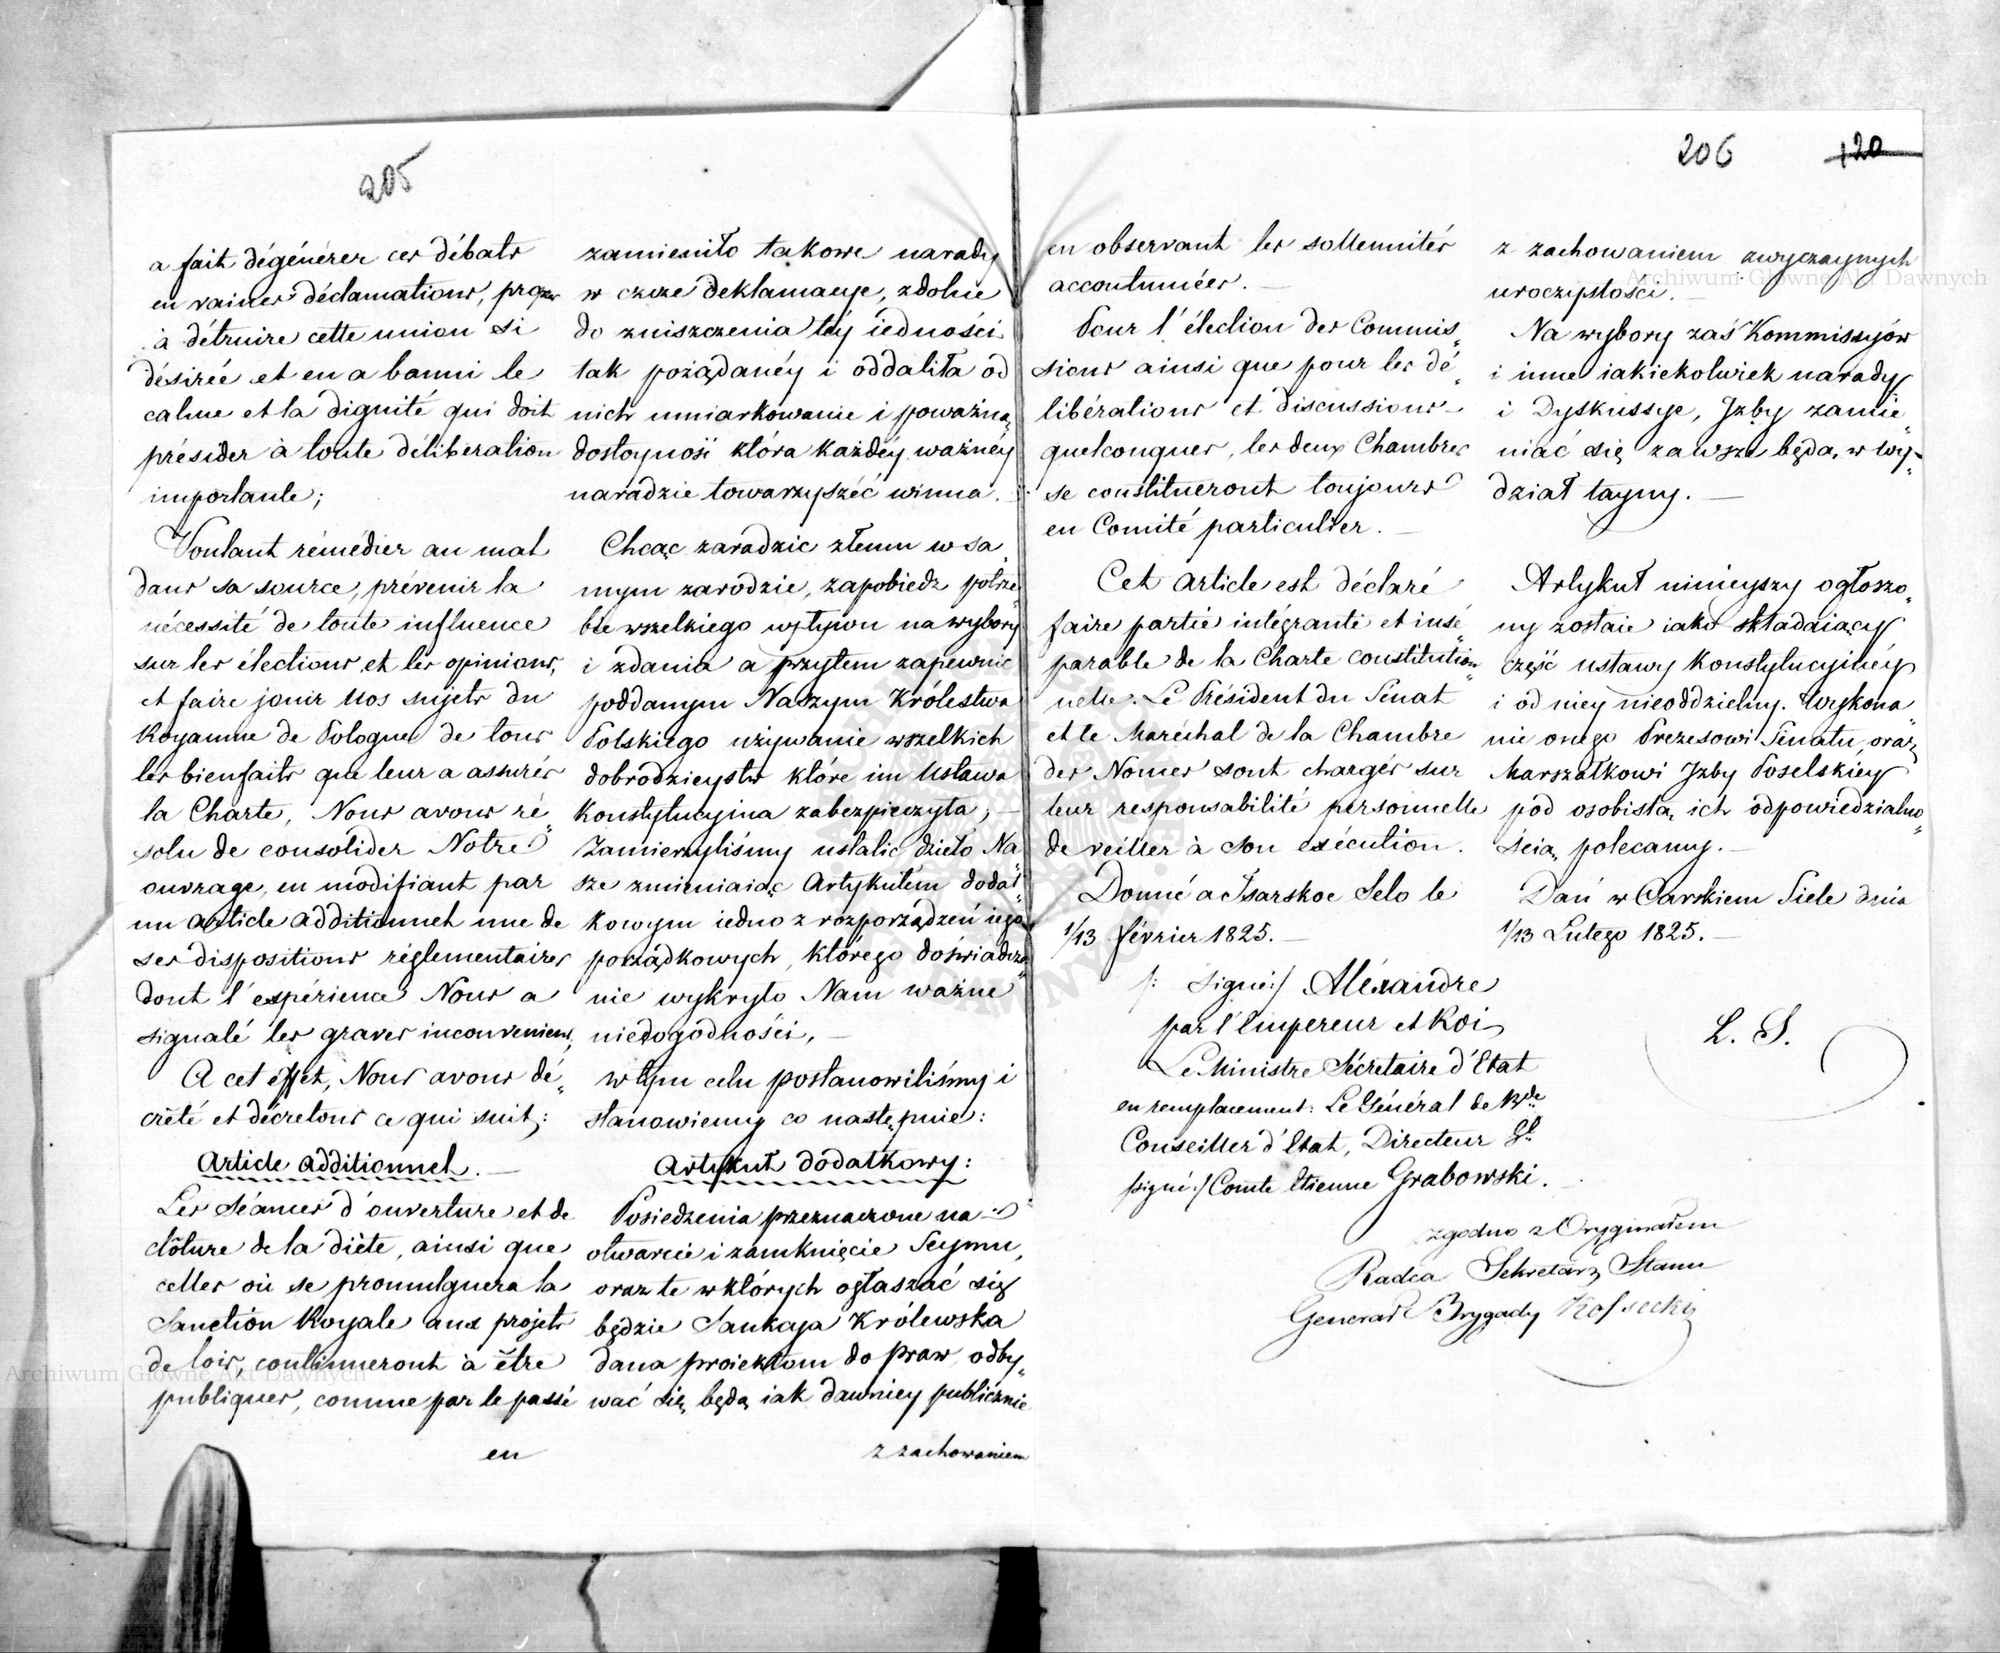 205
a fait dégénérer ces débats
en vaines déclamations, propres
à détruire cette union si
désirée et en a banni le
calme et la dignité qui doit
présider à toute déliberation
importante;
Voulant rémédier au mal
dans sa source, prévenir la
nécessité de toute influence
sur les élections et les opinions,
et faire jouir Nos sujets du
Royaume de Pologne de tous
les bienfaits que leur a assurés
la Charte, Nous avons ré„
solu de consolider Notre
ouvrage, en modifiant par
un article additionnel une de
ses dispositions réglementaires
dont l'expérience Nous a
signalé les graves inconveniens,
A cet effet, Nous avons dé„
crété et décretons ce qui suit:
Article additionnel.
Les Séances d'ouverture et de
clôture de la diète, ainsi que
celles où se promulguera la
Sanction Royale aux projets
de lois, continueront à être
publiques, comme par le passé
en
zamieniło takowe narady
w czcze deklamacye, zdolne
do zniszczenia téy iedności
tak pożądanéy i oddaliła od
nich umiarkowanie i poważną
dostoyność która każdéy ważnéy
naradzie towarzyszéć winna.
Chcąc zaradzic złemu w sa„
mym zarodzie, zapobiedz potrze
bie wszelkiego wpływu na wybory
i zdania a przytem zapewnic
poddanym Naszym Królestwa
Polskiego używanie wszelkich
dobrodzieystw które im Ustawa
Konstytucyina zabezpieczyła;
Zamierzyliśmy ustalic dzieło Na„
sze zmieniaiąc Artykułem dodat„
kowym iedno z rozporządzeń iego
porządkowych, którego doświadcze„
nie wykryło Nam ważne
niedogodności,
w tym celu postanowiliśmy i
stanowiemy co następnie:
Artykuł dodatkowy:
Posiedzenia przeznaczone na
otwarcie i zamknięcie Seymu,
oraz te w których ogłaszać się
będzie Sankcya Królewska
dana proiektom do praw, odby„
wać się będą iak dawniey publicznie
z zachowaniem
206 120
en observant les sollemnités
accoutumées.
Pour l'élection des Commis„
sions ainsi que pour les dé„
libérations et discussions
quelconques, les deux Chambres
se constitueront toujours
en Comité particulier.
Cet article est déclaré
faire partie intégrante et insé„
parable de la Charte constitution„
nelle. Le Président du Sénat
et le Maréchal de la Chambre
des Nonces sont chargés sur
leur responsabilité personnelle
de veiller à son exécution.
Donné a Tsarskoe Selo le
1/13 février 1825.
/: Signé:/ Aléxandre
par l'Empereur et Roi
Le Ministre Sécretaire d'Etat
en remplacement: Le Général de Bde
Conseiller d'Etat, Directeur Gl
/signé:/ Comte Etienne Grabowski.
z zachowaniem zwyczaynych
uroczystości.
Na wybory zaś Kommissyów
i inne iakiekolwiek narady
i Dyskussye, Izby zamie„
niać się zawsze będą, w wy„
dział tayny.
Artykuł ninieyszy ogłoszo„
ny zostaie iako składaiący
część ustawy Konstytucyinéy
i od niey nieoddzielny. Wykona„
nie onego Prezesowi Senatu, oraz
Marszałkowi Izby Poselskiey
pod osobistą, ich odpowiedzialno„
ścią, polecamy.
Dań w Carskiem Siele dnia
1/13 Lutego 1825.
L. S.
zgodno z Oryginałem
Radca Sekretarz Stanu
Generał Brygady Kossecki
Archiwum Główne Akt Dawnych
Archiwum Główne Akt Dawnych